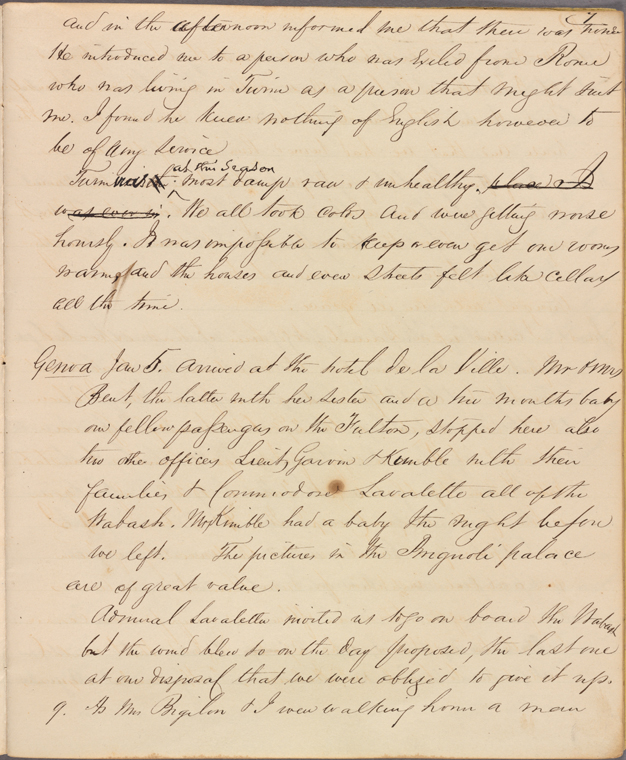 and in the afternoon informed me that there was none
He introduced me to a person who was exiled from Rome
who was living in Turin as a person that might suit
me. I found he knew nothing of English however to
be of any service
at this Season
Turin was most damp raw & unhealthy.
was ever in. We all took colds and were getting worse
hourly. It was impossible to keep or even get our rooms
warm, and the houses and even streets felt like cellars
all the time.
Genoa Jan 5. arrived at the hotel de la Ville. Mr & Mrs
Bent, the latter with her sister and a two months baby
our fellow passengers on the Fulton, stopped here also
two other officers Lieuts & Kimble with their
families & Commodore Lavalette all of the
Wabash. Mrs Kimble had a baby the night before
we left. The pictures in the palace
are of great value.
Admiral Lavalette invited us to go on board the Wabash
but the wind blew so on the day proposed, the last one
at our disposal that we were obliged to give it up.
9. As Mrs & I were walking home a man